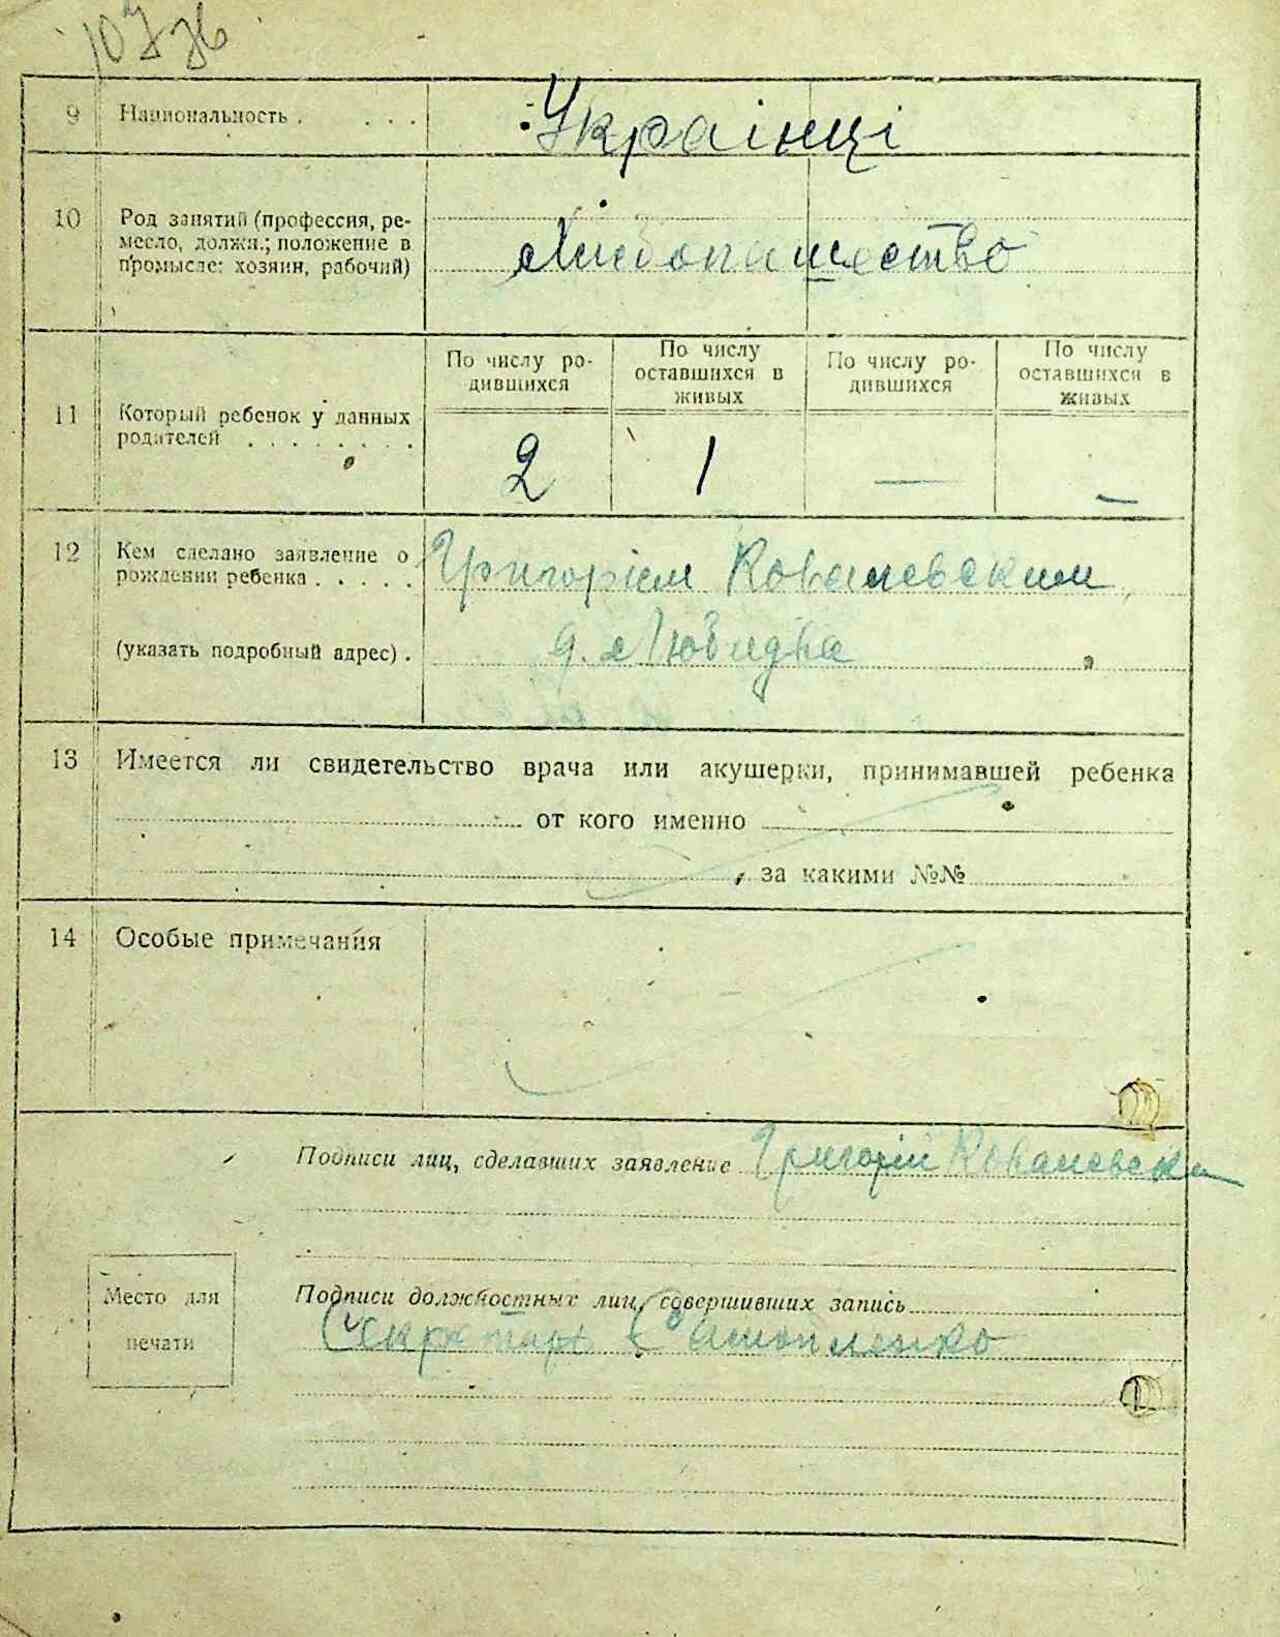 9 Национальность . . . . Українці
10 Род занятий (профессия, ре-
месло, должн.; положение в
промысле: хозяин, рабочий)
Хлебопашество
По числу ро-
дившихся
По числу
оставшихся в
живых
По числу ро-
дившихся
По числу
оставшихся в
живых
11 Который ребенок у данных
родителей . . . . . . . .
2 1 — —
12 Кем сделано заявление о
рождении ребенка . . . . .
Григорієм Ковалевским
(указать подробный адрес) .
13 Имеется ли свидетельство врача или акушерки, принимавшей ребенка
от кого именно
, за какими №№
14 Особые примечания
Подписи лиц, сделавших заявление Григорій Ковалевски
Место для
печати
Подписи должностных лиц, совершивших запись